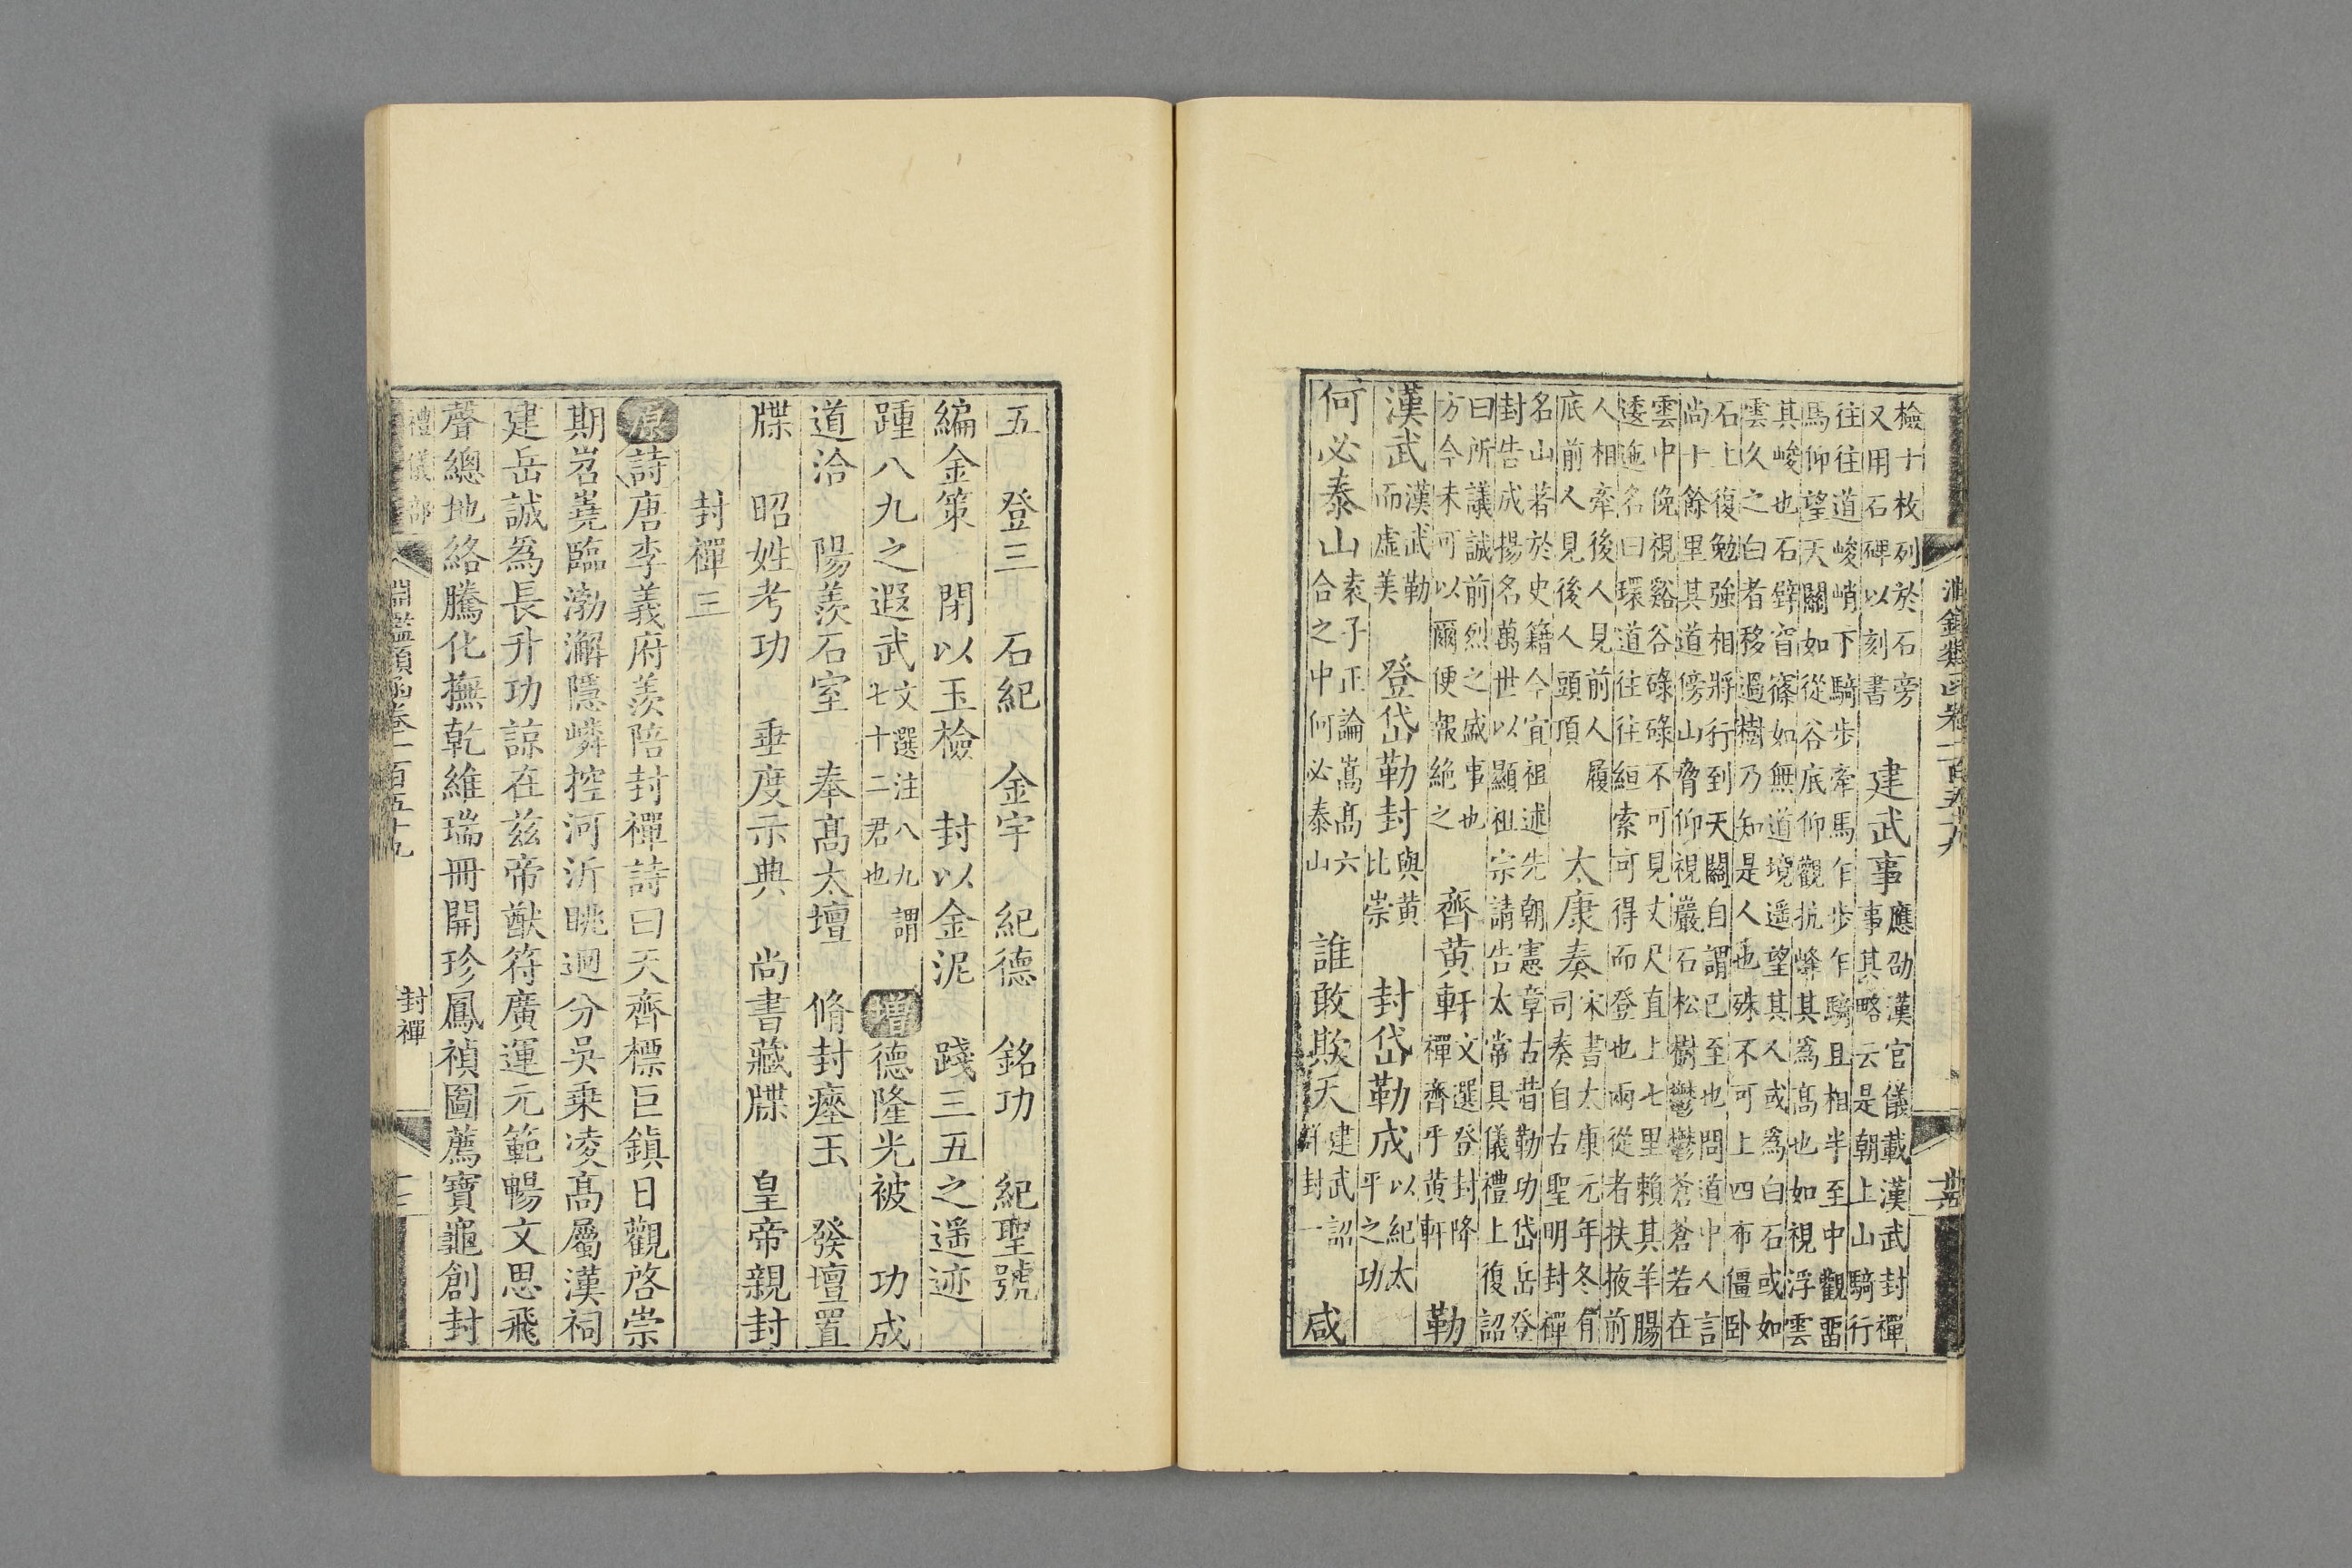 檢十枚列於石旁
又用石碑以刻書
建武事
應劭漢官儀載漢武封禪
事其略云是朝上山騎行
往往道峻峭下騎步牽馬乍步乍騎且相半至中觀畱
馬仰望天關如從谷底仰觀抗峰其為高也如視浮雲
其峻也石壁窅篠如無道境遥望其人或為白石或如
雲久之白者移過樹乃知是人也殊不可上四布僵卧
石上復勉強相將行到天關自謂已至也問道中人言
尚十餘里其道傍山脅仰視巖石松樹鬱鬱蒼蒼若在
雲中俛視谿谷碌碌不可見丈尺直上七里賴其羊腸
逶迤名曰環道往往絙索可得而登也兩從者扶掖前
人相牽後人見前人履
底前人見後人頭頂
太康奏
宋書太康元年冬有
司奏自古聖明封禪
名山著於史籍今宜祖述先朝憲章古昔勒功岱岳登
封告成揚名萬世以顯祖宗請告太常具儀禮上復詔
曰所議誠前烈之盛事也
方今未可以爾便報絶之
齊黄軒
文選登封降
禪齊乎黄軒
勒
漢武
漢武勒
而虛美
登岱勒封
與黄
比崇
封岱勒成
以紀太
平之功
何必泰山
袁子正論嵩高六
合之中何必泰山
誰敢欺天
建武詔
群封一
咸
淵鑑類函卷一百五十九
五 登三 石紀 金宇 紀德 銘功 紀聖號
編金策 閉以玉檢 封以金泥 踐三五之遥迹
踵八九之遐武
文選注八九謂
七十二君也
增德隆光被 功成
道洽 陽羨石室 奉高太壇 脩封瘞玉 發壇置
牒 昭姓考功 垂度示典 尚書藏牒 皇帝親封
封禪三
原詩唐李義府羨陪封禪詩曰天齊標巨鎮日觀啓崇
期岧嶤臨渤澥隱嶙控河沂眺迥分吳乗凌高屬漢祠
建岳誠為長升功諒在茲帝猷符廣運元範暢文思飛
聲總地絡騰化撫乾維瑞冊開珍鳳禎圖薦寶龜創封
禮儀部
淵鑑類函卷一百五十九
封禪